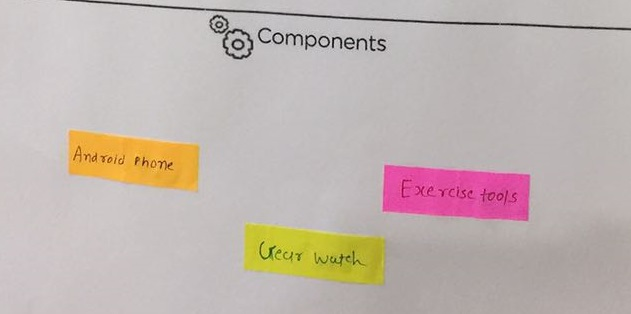 Components
Android Phone
Exercise tools
Gear watch